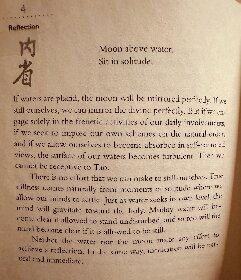 4
Reflection
內
省
Moon above water.
Sit in solitude.
If waters are placid, the moon will be mirrored perfectly. If we
still ourselves, we can mirror the divine perfectly. But if we en-
gage solely in the frenetic activities of our daily involvements,
if we seek to impose our own schemes on the natural order,
and if we allow ourselves to become absorbed in self-centered
views, the surface of our waters becomes turbulent. Then we
cannot be receptive to Tao.
There is no effort that we can make to still ourselves. True
stillness comes naturally from moments of solitude where we
allow our minds to settle. Just as water seeks its own level, the
mind will gravitate toward the holy. Muddy water will be-
come clear if allowed to stand undisturbed, and so too will the
mind become clear if it is allowed to be still.
Neither the water nor the moon make any effort to
achieve a reflection. In the same way, meditation will be natu-
ral and immediate.